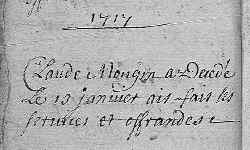 1717
Claude Mongin a Decedé
Le 19 janvier ais fais les
services et offrandes